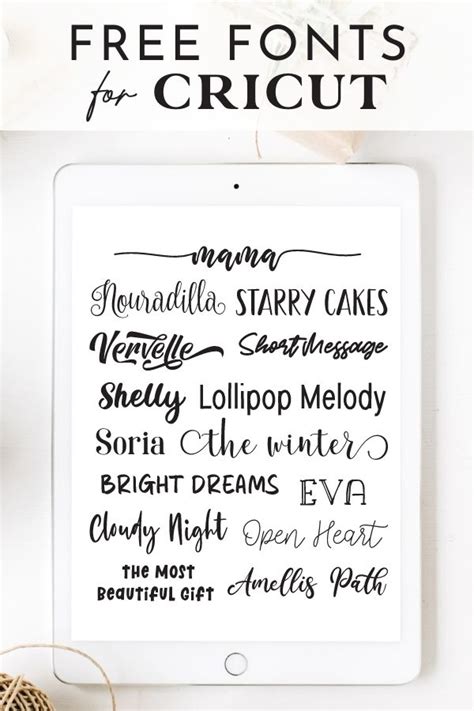 FREE FONTS
for CRICUT
mama
Nouradilla STARRY CAKES
Vervelle Short Message
Shelly Lollipop Melody
Soria the winter
BRIGHT DREAMS EVA
Cloudy Night Open Heart
THE MOST
BEAUTIFUL GIFT Amellis Path